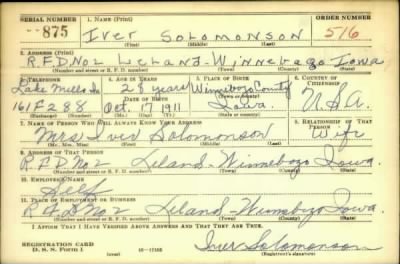 SERIAL NUMBER 1. NAME (Print) ORDER NUMBER
875 Iver Solomonson 516
(First) (Middle) (Last)
2. ADDRESS (Print)
R.F.D No2 Leland - Winnebago Iowa
(Number and street or R. F. D. number) (Town) (County) (State)
3. TELEPHONE 4. AGE IN YEARS 5. PLACE OF BIRTH 6. COUNTRY OF CITIZENSHIP
Lake Mills Ia 28 years Winnebago County
DATE OF BIRTH
161F288 Oct. 17 1911 Iowa. U.S.A
7. NAME OF PERSON WHO WILL ALWAYS KNOW YOUR ADDRESS 8. RELATIONSHIP OF THAT PERSON
Mrs Iver Solomonson Wife
(Mr., Mrs., Miss) (First) (Middle) (Last)
9. ADDRESS OF THAT PERSON
R.F.D No 2 Leland - Winnebago Iowa.
(Number and street or R. F. D. number) (Town) (County) (State)
10. EMPLOYER'S NAME
Self
11. PLACE OF EMPLOYMENT OR BUSINESS
R.F.D No 2 Leland - Winnebago Iowa.
(Number and street or R. F. D. number) (Town) (County) (State)
I AFFIRM THAT I HAVE VERIFIED ABOVE ANSWERS AND THAT THEY ARE TRUE.
REGISTRATION CARD
D. S. S. Form 1 (over) Iver Solomonson
(Registrant's signature)